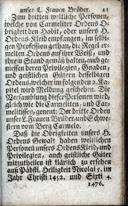 unser L. Frauen Brüder. 21
Zum dritten weltliche Personen,
welche von Carmeliten Ordens O-
brigkeit den Habit, oder unsers H.
Ordens Kleid empfangen, im selbi-
gen Profession gethan, die Regel er-
melten Ordens auff ihre Weiß, und
ihrem Stand gemäß halten, auch ge-
niessen deren Privilegien, Gnaden,
und geistlichen Gütern desselben
Ordens, welcher im folgenden 2. Ca-
pitel wird Meldung geschehen. Die
Versamblung dieser Personen wird,
gleich wie die Carmeliten, und Car-
melitessen, genent: Der dritte Orden
unser L. Frauen Brüder und Schwe-
stern vom Berg Carmelo.
Daß die Obrigkeiten unsers H.
Ordens Gewalt haben weltlichen
Personen unsers Ordens Kleid, und
Privilegien, auch geistliche Güter
mitzutheilen ist klärlich zu ersehen
aus Päbstl. Heiligkeit Nicolai V. im
Jahr Christi 1452. und Sixti 4.
1476.